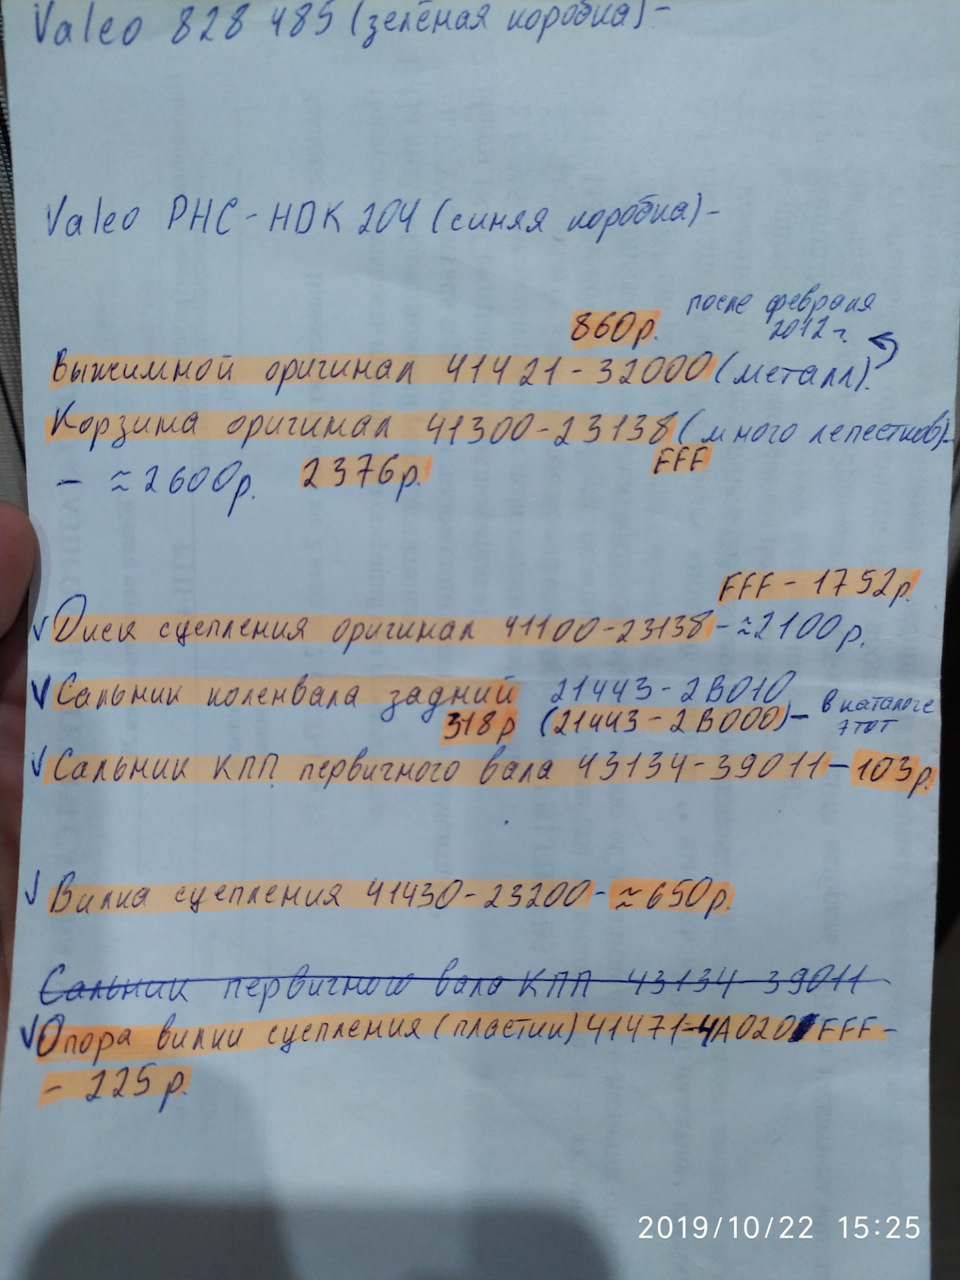 Valeo 828 485 (зелёная коробка)-
Valeo PHC-HDK 204 (синяя коробка)-
после февраля
860р. 2012 г.
Выжимной оригинал 41421-32000 (металл).
Корзина оригинал 41300-23138 (много лепестков)-
- ≈2600р. 2376р. FFF
FFF - 1752р.
Диск сцепления оригинал 41100-23138-≈2100р.
Сальник коленвала задний 21443-2B010
318р (21443-2B000)- в каталоге этот
Сальник КПП первичного вала 43134-39011-103р.
Вилка сцепления 41430-23200-≈650р.
Сальник первичного вала КПП 43134-39011
Опора вилки сцепления (пластик) 41471-4A020 FFF-
- 225р.
2019/10/22 15:25